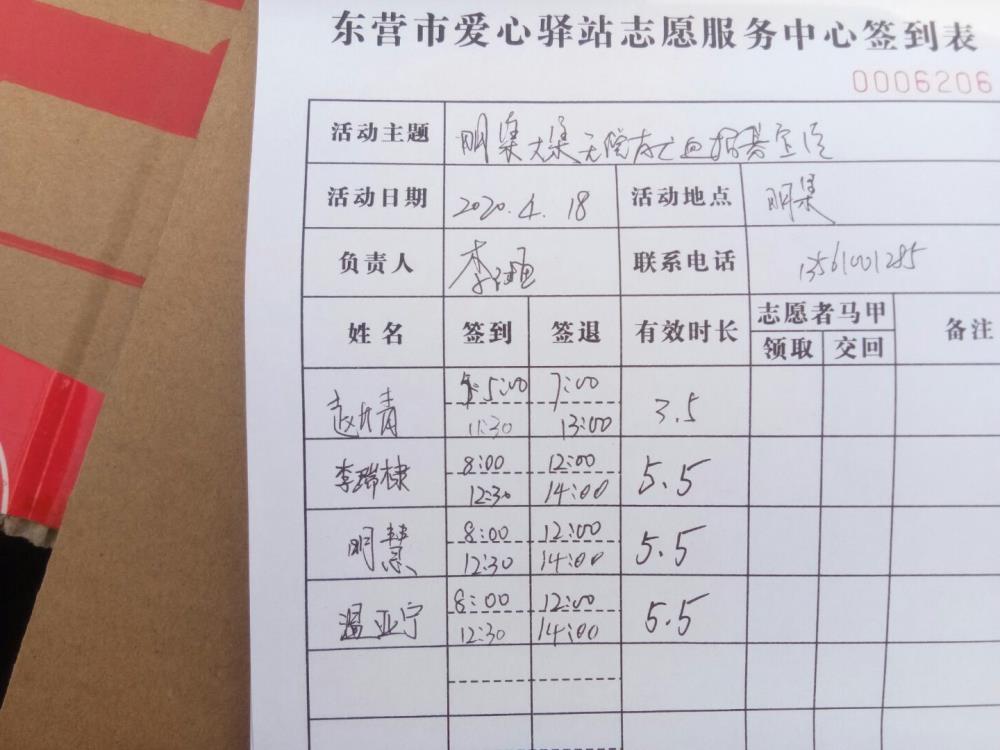 东营市爱心驿站志愿服务中心签到表
0006206
活动主题 明集大集无偿献血招募宣传
活动日期 2020.4.18 活动地点 明集
负责人 李 联系电话 13561001285
姓名 签到 签退 有效时长 志愿者马甲 备注
领取 交回
赵 靖 5:00 7:00 3.5
11:30 13:00
李瑞棣 8:00 12:00 5.5
12:30 14:00
明慧 8:00 12:00 5.5
12:30 14:00
温亚宁 8:00 12:00 5.5
12:30 14:00